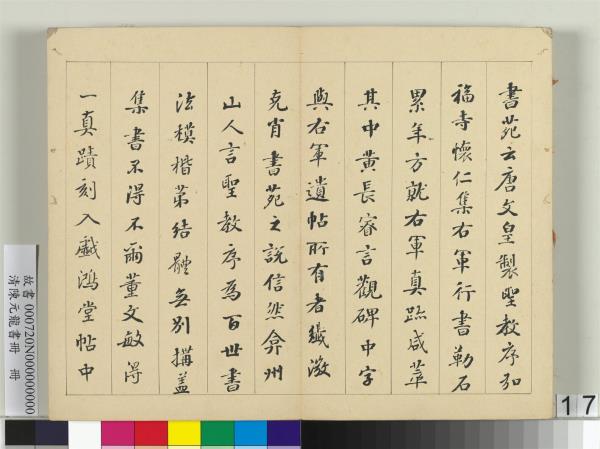 書苑云唐文皇製聖教序弘
福寺懷仁集右軍行書勒石
累年方就右軍真跡咸萃
其中黃長睿言觀碑中字
與右軍遺帖所有者纖微
克肖書苑之說信然弇州
山人言聖教序為百世書
法模楷第結體無別搆蓋
集書不得不爾董文敏得
一真蹟刻入戲鴻堂帖中
故書 000720N000000000
清陳元龍書冊 冊
17